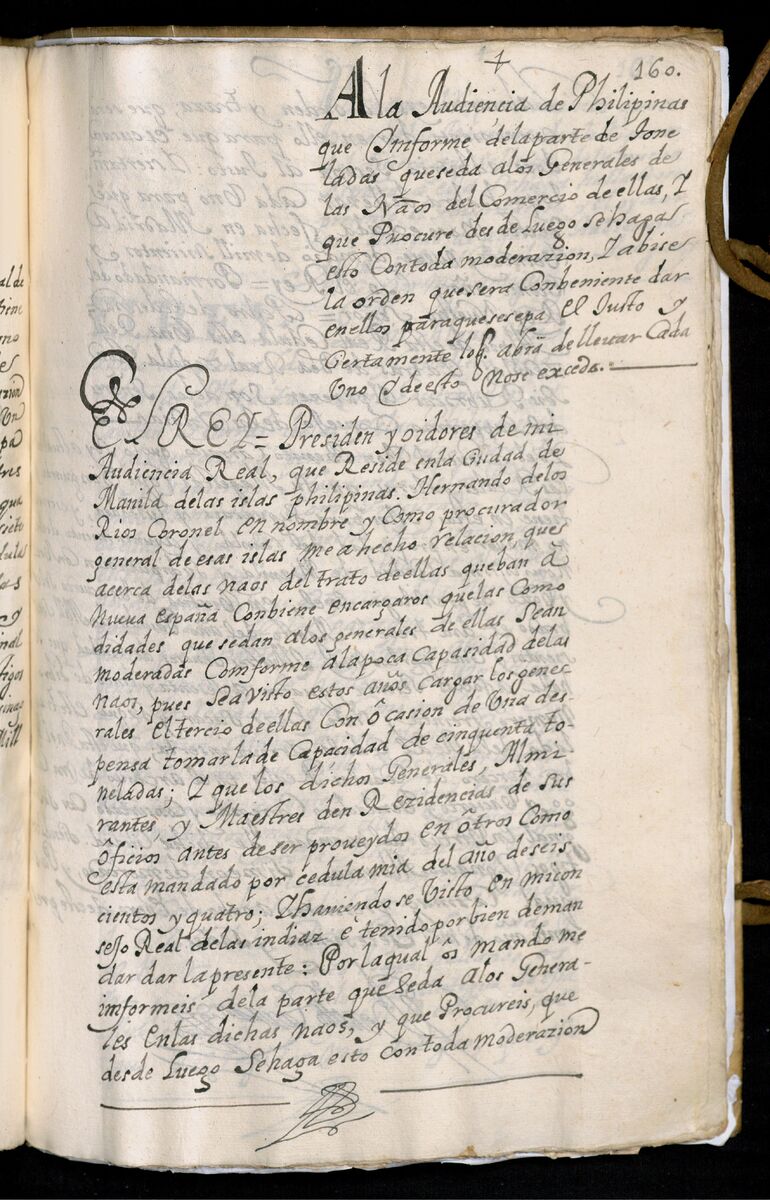 160.
A la Audiencia de Philipinas
que Ymforme delaparte de Tone
ladas queseda alos Generales de
las Naos del Comercio de ellas, Y
que Procure desde Luego Sehaga
esto Contoda moderazion, Y abise
la orden quesera Conbeniente dar
enello paraquesesepa el Justo y
Certamente los. abrã dellevar Cada
Uno Y de esto Nose exceda.
EL REY = Presiden y oidores de mi
Audiencia Real, que Reside enla Ciudad de
Manila delas islas philipinas. Hernando delos
Rios Coronel en nombre y Como procurador
general de esas islas me a hecho relacion, ques
acerca delas naos del trato deellas queban â
Nueva españa Conbiene encargaros quelas Como
didades que sedan alos generales de ellas Sean
moderadas Comforme alapoca Capasidad delas
naos, pues Seavisto estos años Cargar los gene
rales el tercio deellas Con ôcasion de Una des
pensa tomarlade Capacidad de cinquenta to
neladas; Y que los dichos Generales, Almi
rantes, y Maestres den Rezidencias de sus
ôficios antes deser proveydos en ôtros Como
esta mandado por cedula mia del año deseis
cientos y quatro; Yhaviendose Visto en micon
sejo Real delas indiaz è tenido por bien deman
dar dar la presente: Porlaqual ôs mando me
imformeis dela parte que Seda alos Genera-
les Enlas dichas naos, y que Procureis, que
desde Luego Sehaga esto contoda moderazion